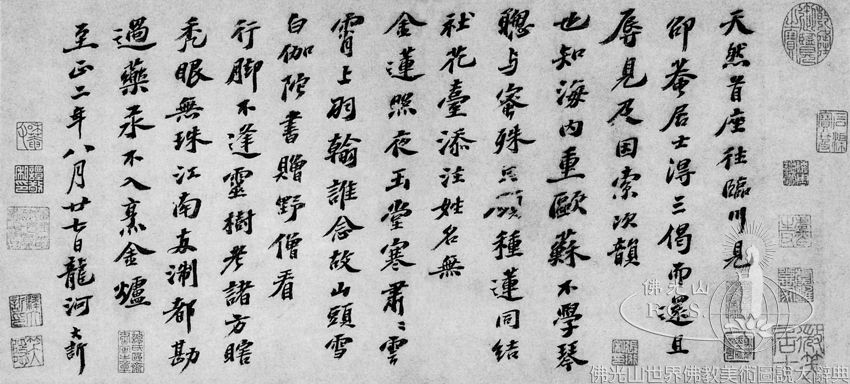 天然首座往臨川見
卲菴居士得三偈而還且
辱見及因索次韻
也知海內重歐蘇不學琴
聰与蜜殊願種蓮同結
社花臺添注姓名無
金蓮照夜玉堂寒肅〻雲
霄上羽翰誰念故山頭雪
白伽陀書贈野僧看
行脚不逢靈樹老諸方瞎
禿眼無珠江南淛都勘
過藥汞不入烹金爐
至正二年八月廿七日龍河大訢
佛光山
F.G.S.
佛光山世界佛教美術圖說大辭典